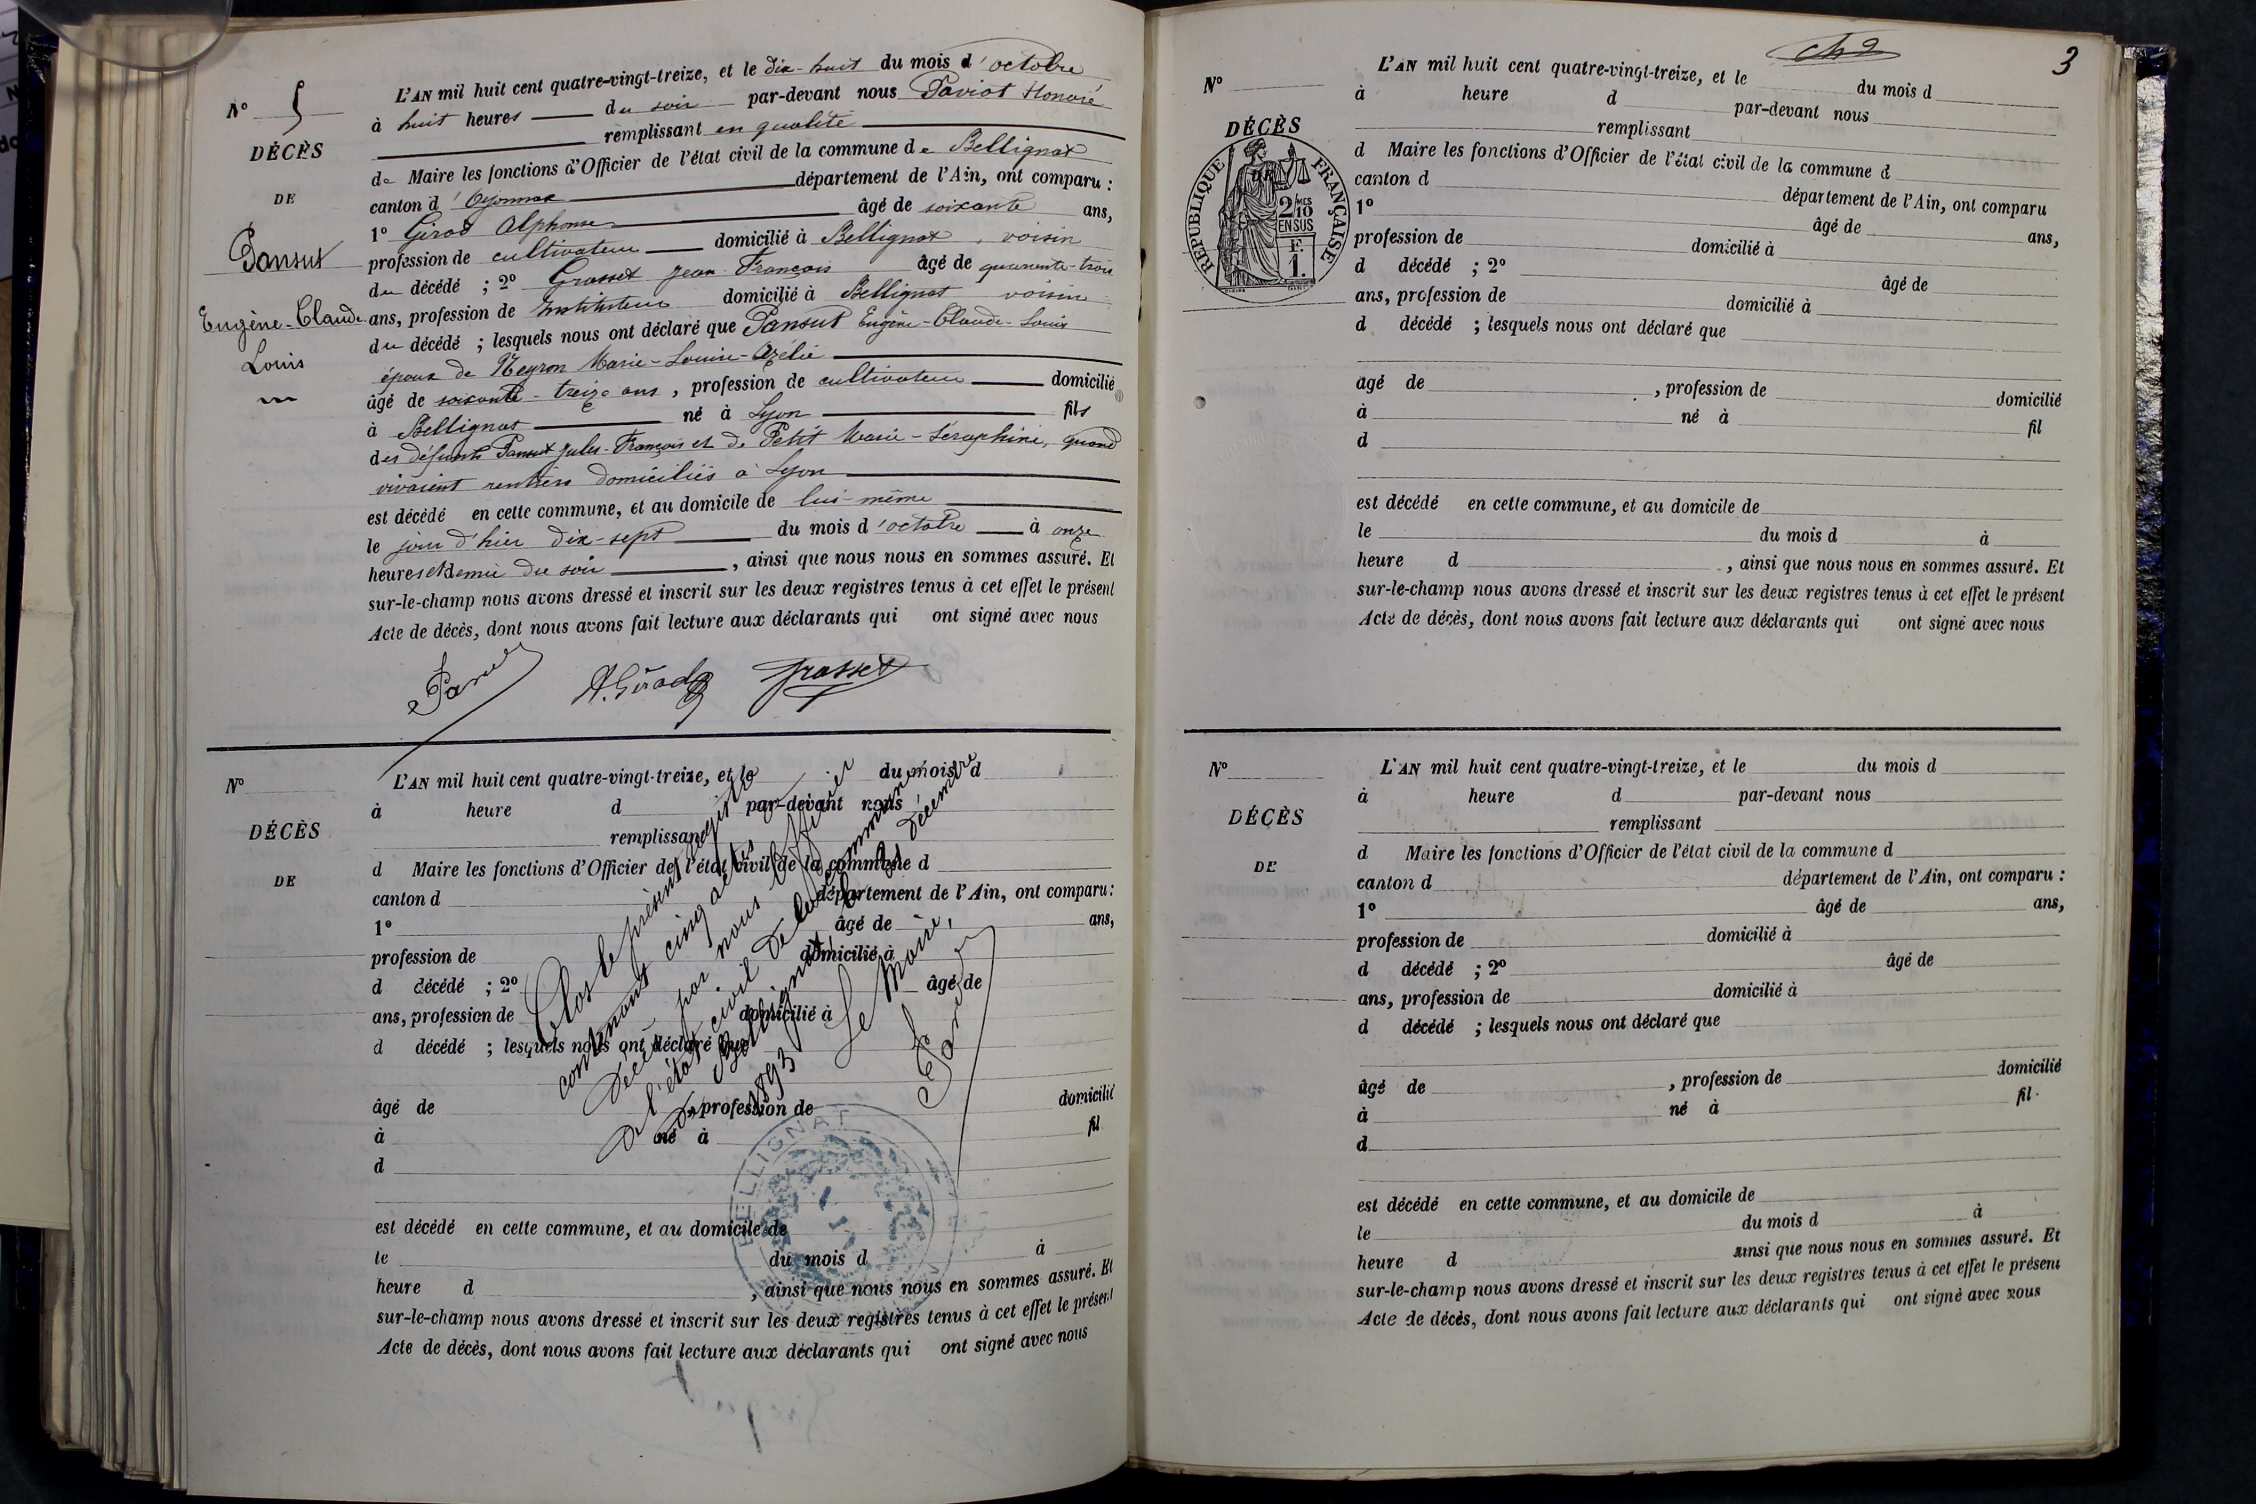 N° 5
DÉCÈS
DE
Pansut
Eugène-Claude
Louis
L'AN mil huit cent quatre-vingt-treize, et le dix-huit du mois d'octobre
à huit heures du soir par-devant nous Paviot Honoré
remplissant en qualité
de Maire les fonctions d'Officier de l'état civil de la commune de Bellignat
canton d'Oyonnax département de l'Ain, ont comparu :
1° Girod Alphonse âgé de soixante ans,
profession de cultivateur domicilié à Bellignat, voisin
du décédé ; 2° Grasset Jean François âgé de quarante-trois
ans, profession de Instituteur domicilié à Bellignat voisin
du décédé ; lesquels nous ont déclaré que Pansut Eugène-Claude-Louis
époux de Neyron Marie-Louise-Azélie
âgé de soixante-treize ans, profession de cultivateur domicilié
à Bellignat né à Lyon fils
des défunts Pansut Jules-François et de Petit Marie-Séraphine, quand
vivaient rentiers domiciliés à Lyon
est décédé en cette commune, et au domicile de lui-même
le jour d'hier dix-sept du mois d'octobre à onze
heures et demie du soir, ainsi que nous nous en sommes assuré. Et
sur-le-champ nous avons dressé et inscrit sur les deux registres tenus à cet effet le présent
Acte de décès, dont nous avons fait lecture aux déclarants qui ont signé avec nous
A. Girod Grasset
N°
DÉCÈS
DE
L'AN mil huit cent quatre-vingt-treize, et le du mois d
à heure d par-devant nous
remplissant
d Maire les fonctions d'Officier de l'état civil de la commune d
canton d département de l'Ain, ont comparu :
1° âgé de ans,
profession de domicilié à
d décédé ; 2° âgé de
ans, profession de domicilié à
d décédé ; lesquels nous ont déclaré que
âgé de , profession de domicilié
à né à fil
d
est décédé en cette commune, et au domicile de
le du mois d à
heure d , ainsi que nous nous en sommes assuré. Et
sur-le-champ nous avons dressé et inscrit sur les deux registres tenus à cet effet le présent
Acte de décès, dont nous avons fait lecture aux déclarants qui ont signé avec nous
Clos le présent registre
contenant cinq actes de
décès par nous Officier
de l'état civil de la commune
de Bellignat, le 31 décembre
1893
Le Maire,
BELLIGNAT
3
N°
DÉCÈS
RÉPUBLIQUE FRANÇAISE
2/10 MES
EN SUS
F.
1.
L'AN mil huit cent quatre-vingt-treize, et le du mois d
à heure d par-devant nous
remplissant
d Maire les fonctions d'Officier de l'état civil de la commune d
canton d département de l'Ain, ont comparu
1° âgé de ans,
profession de domicilié à
d décédé ; 2° âgé de
ans, profession de domicilié à
d décédé ; lesquels nous ont déclaré que
agé de , profession de domicilié
à né à fil
d
est décédé en cette commune, et au domicile de
le du mois d à
heure d , ainsi que nous nous en sommes assuré. Et
sur-le-champ nous avons dressé et inscrit sur les deux registres tenus à cet effet le présent
Acte de décès, dont nous avons fait lecture aux déclarants qui ont signé avec nous
N°
DÉCÈS
DE
L'AN mil huit cent quatre-vingt-treize, et le du mois d
à heure d par-devant nous
remplissant
d Maire les fonctions d'Officier de l'état civil de la commune d
canton d département de l'Ain, ont comparu :
1° âgé de ans,
profession de domicilié à
d décédé ; 2° âgé de
ans, profession de domicilié à
d décédé ; lesquels nous ont déclaré que
âgé de , profession de domicilié
à né à fil
d
est décédé en cette commune, et au domicile de
le du mois d à
heure d ainsi que nous nous en sommes assuré. Et
sur-le-champ nous avons dressé et inscrit sur les deux registres tenus à cet effet le présent
Acte de décès, dont nous avons fait lecture aux déclarants qui ont signé avec nous